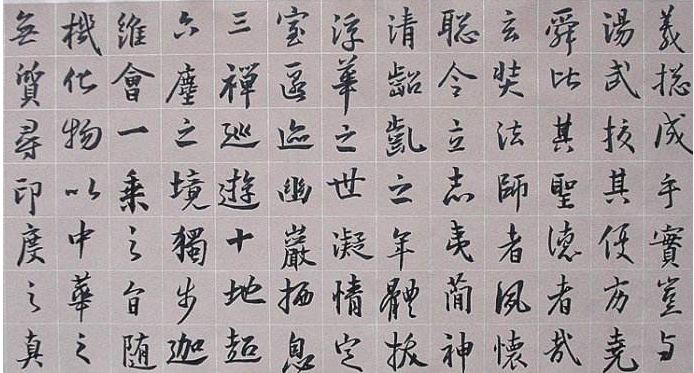 義揔成手實豈与
湯武挍其优劣堯
舜比其聖德者哉
玄奘法師者夙懷
聡令立志夷簡神
清齠齓之年體拔
浮華之世凝情定
室匿迹幽巖栖息
三禪巡遊十地超
六塵之境獨步迦
維會一乘之旨随
機化物以中華之
無質尋印度之真